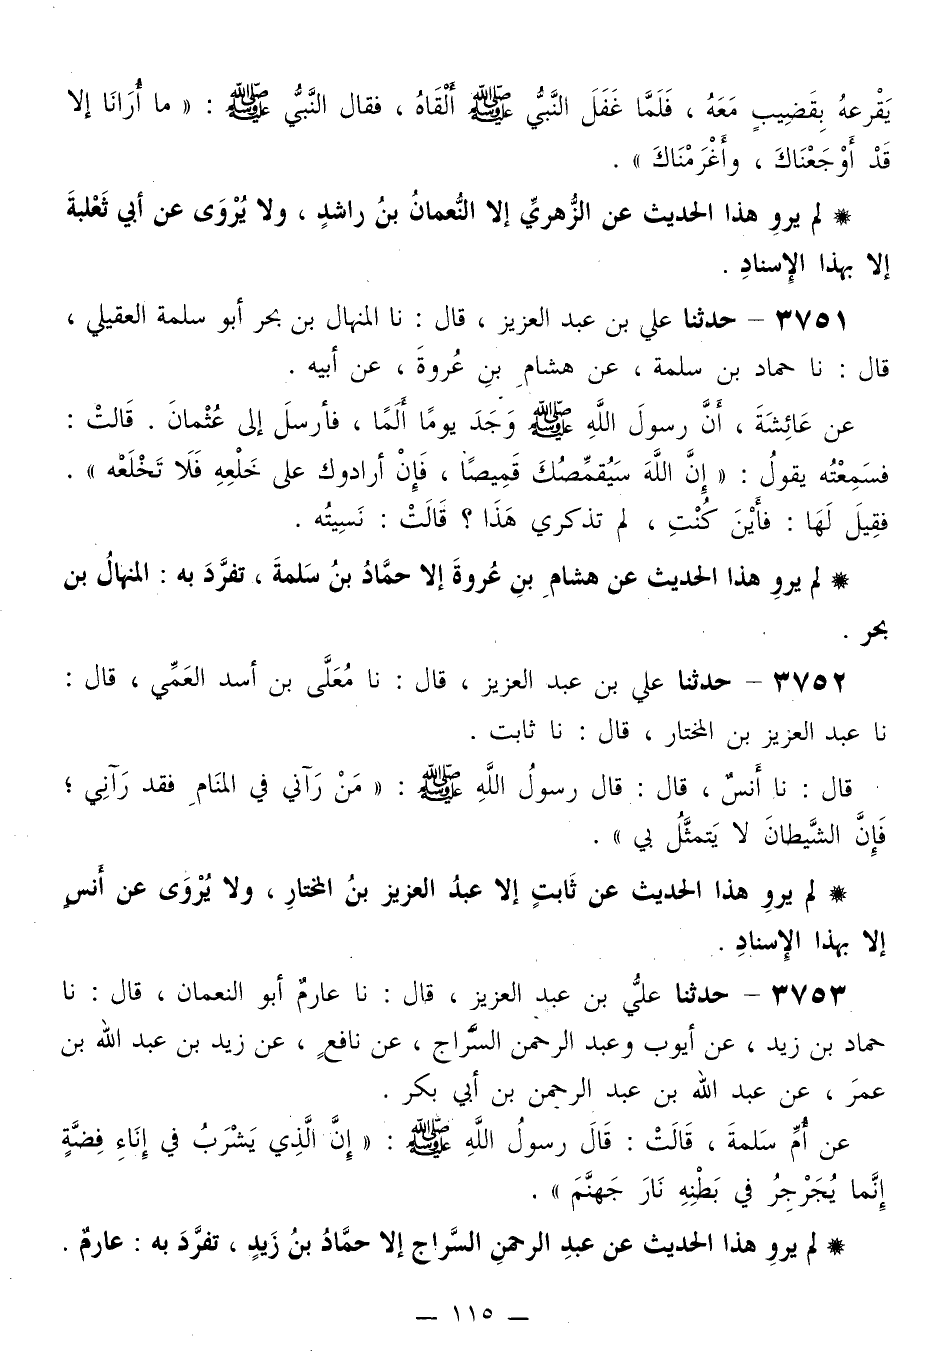 يَقْرعهُ بِقَضِيبٍ مَعَهُ ، فَلَمَّا غَفَلَ النَّبيُّ ﷺ أَلْقَاهُ ، فقال النَّبيُّ ﷺ : « ما أُرَانَا إلا
قَدْ أَوْجَعْنَاكَ ، وأَغْرَمْنَاكَ » .
* لم يروِ هذا الحديث عن الزُّهريِّ إلا النُّعمانُ بنُ راشدٍ ، ولا يُرْوَى عن أبي ثَعْلبةَ
إلا بهذا الإسنادِ .
٣٧٥١ – حدثنا علي بن عبد العزيز ، قال : نا المنهال بن بحر أبو سلمة العقيلي ،
قال : نا حماد بن سلمة ، عن هشامِ بنِ عُروةَ ، عن أبيه .
عن عَائِشَةَ ، أَنَّ رسولَ اللَّهِ ﷺ وَجَدَ يومًا أَلَمًا ، فأرسلَ إلى عُثْمانَ . قَالتْ :
فسَمِعْتُه يقولُ : « إِنَّ اللَّهَ سَيُقمِّصُكَ قَمِيصًا ، فَإِنْ أرادوك على خَلْعِهِ فَلَا تَخْلَعْه » .
فقِيلَ لَهَا : فأَيْنَ كُنْتِ ، لم تذكري هَذَا ؟ قَالَتْ : نَسِيتُه .
* لم يروِ هذا الحديث عن هشامِ بنِ عُروةَ إلا حمَّادُ بنُ سَلمةَ ، تفرَّدَ به : المنهالُ بن
بحر .
٣٧٥٢ – حدثنا علي بن عبد العزيز ، قال : نا مُعَلَّى بن أسد العَمِّي ، قال :
نا عبد العزيز بن المختار ، قال : نا ثابت .
قال : نا أَنسٌ ، قال : قال رسولُ اللَّهِ ﷺ : « مَنْ رَآني في المنَامِ فقد رَآنِي ؛
فَإِنَّ الشَّيطانَ لا يَتمثَّلُ بي » .
* لم يروِ هذا الحديث عن ثَابتٍ إلا عبدُ العزيز بنُ المختارِ ، ولا يُرْوَى عن أَنسٍ
إلا بهذا الإسنادِ .
٣٧٥٣ – حدثنا عليُّ بن عبد العزيز ، قال : نا عارمٌ أبو النعمان ، قال : نا
حماد بن زيد ، عن أيوب وعبد الرحمن السَّراج ، عن نافعٍ ، عن زيد بن عبد الله بن
عمرَ ، عن عبد الله بن عبد الرحمن بن أبي بكر .
عن أُمِّ سَلمةَ ، قَالَتْ : قَالَ رسولُ اللَّهِ ﷺ : « إِنَّ الَّذِي يَشْرَبُ في إِنَاءِ فِضَّةٍ
إِنَّما يُجَرْجِرُ في بَطْنِهِ نَارَ جَهنَّمَ » .
* لم يروِ هذا الحديث عن عبدِ الرحمنِ السَّراج إلا حمَّادُ بنُ زَيدٍ ، تفرَّدَ به : عارمٌ .
— ١١٥ —